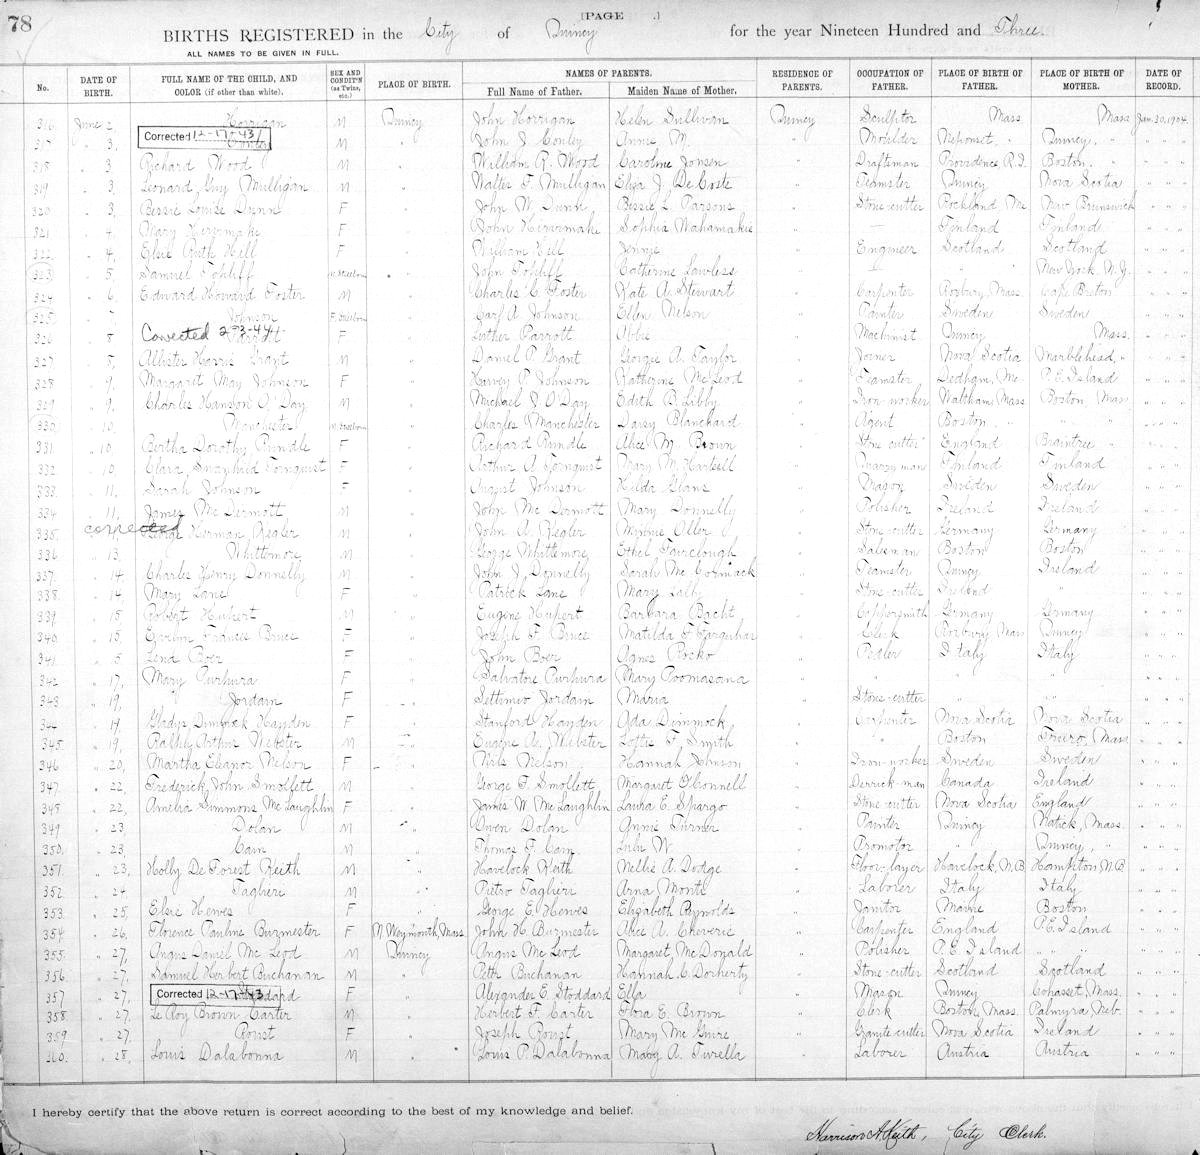 78
[PAGE .]
BIRTHS REGISTERED in the City of Quincy for the year Nineteen Hundred and Three.
ALL NAMES TO BE GIVEN IN FULL.
No. DATE OF BIRTH. FULL NAME OF THE CHILD, AND COLOR (if other than white). SEX AND CONDIT'N (as Twins, etc.) PLACE OF BIRTH. NAMES OF PARENTS. Full Name of Father. Maiden Name of Mother. RESIDENCE OF PARENTS. OCCUPATION OF FATHER. PLACE OF BIRTH OF FATHER. PLACE OF BIRTH OF MOTHER. DATE OF RECORD.
316 June 2, Horrigan M Quincy John Horrigan Helen Sullivan Quincy Sculptor Mass Mass Jan. 30, 1904.
Corrected 12-17-43
317 " 3, Conley M " John J. Conley Annie M. " Moulder Neponset, " Quincy, " " " "
318 " 3 Richard Wood M " William R. Wood Caroline Jensen " Draftsman Providence, R.I. Boston " " " "
319 " 3, Leonard Guy Mulligan M " Walter F. Mulligan Eliza J. DeCoste " Teamster Quincy Nova Scotia " " "
320 " 3, Bessie Louise Dunn F " John W. Dunn Bessie L. Parsons " Stone-cutter Rockland Me New Brunswick " " "
321 " 4, Mary F " John Sophia " — Finland Finland " " "
322 " 4, Elsie Ruth Hill F " William Hill Jennie " Engineer Scotland Scotland " " "
323 " 5 Samuel Tohliff M. Stillborn " John Tohliff Catherine Lawless " " New York, N.Y. " " "
324 " 6 Edward Howard Foster M " Charles C. Foster Kate A. Stewart " Carpenter Roxbury, Mass. Cape Breton " " "
325 " 7 Johnson F. Stillborn " Carl A. Johnson Ellen Nelson " Painter Sweden Sweden " " "
Corrected 2-3-44
326 " 8 Parrott F " Luther Parrott Abbie " Machinist Quincy Mass. " " "
327 " 5, Allister Harris Grant M " Daniel P. Grant Georgie A. Taylor " Joiner Nova Scotia Marblehead, " " " "
328 " 9, Margaret May Johnson F " Harvey P. Johnson Katherine McLeod " Teamster Dedham, Me. P.E. Island " " "
329 " 9, Charles Hanson O'Day M " Michael J. O'Day Edith B. Libby " Iron-worker Waltham, Mass Boston, Mass. " " "
330 " 10, Manchester M. Stillborn " Charles Manchester Daisy Blanchard " Agent Boston " " " " " "
331 " 10, Bertha Dorothy Rundle F " Richard Rundle Alice M. Brown " Stone cutter England Braintree " " " "
332 " 10 Clara Tornquist F " Arthur A. Tornquist Mary M. " Quarryman Finland Finland " " "
333 " 11, Sarah Johnson F " August Johnson Hilda " Mason Sweden Sweden " " "
334 " 11, James McDermott M " John McDermott Mary Donnelly " Polisher Ireland Ireland " " "
corrected
335 George Herman Regler M " John A. Regler Minnie Oller " Stone-cutter Germany Germany " " "
336 " 13, Whittemore M " George Whittemore Ethel Fairclough " Salesman Boston Boston " " "
337 " 14, Charles Henry Donnelly M " John J. Donnelly Sarah McCormack " Teamster Quincy Ireland " " "
338 " 14 Mary Lane F " Patrick Lane Mary Lally " Stone-cutter Ireland " " " "
339 " 15 Robert Hupert M " Eugene Hupert Barbara Bacht " Coppersmith Germany Germany " " "
340 " 15, Evelyn Frances Bruce F " Joseph F. Bruce Matilda F. Farquhar " Clerk Roxbury Quincy " " "
341 " 5 Lena Boer F " John Boer Agnes " Pedler Italy Italy " " "
342 " 17, Mary Purhura F " Salvatore Purhura Mary Poomasana " " " " " " "
343 " 19, Jordam F " Settimio Jordam Maria " Stone-cutter " " " " "
344 " 19 Gladys Dimmock Hayden F " Stanford Hayden Ada Dimmock " Carpenter Nova Scotia Nova Scotia " " "
345 " 19, Ralph Arthur Webster M " Eugene A. Webster Lottie F. Smith " " Boston Truro, Mass " " "
346 " 20, Martha Eleanor Nelson F " Nils Nelson Hannah Johnson " Iron-worker Sweden Sweden " " "
347 " 22, Frederick John Smollett M " George F. Smollett Margaret O'Connell " Derrick-man Canada Ireland " " "
348 " 22, Amelia Simmons McLaughlin F " James W. McLaughlin Laura E. Spargo " Stone cutter Nova Scotia England " " "
349 " 23 Dolan M " Owen Dolan Annie Turner " Painter Quincy Natick, Mass. " " "
350 " 23, Cain M " Thomas F. Cain Lulu W. " Promotor " Quincy, " " " "
351 " 23, Holby DeForest Keith M " Havelock Keith Nellie A. Dodge " Floor-layer Havelock, N.B. Hampton, N.B. " " "
352 " 24, Taglieri M " Pietro Taglieri Anna Monti " Laborer Italy Italy " " "
353 " 25, Elsie Hewes F " George E. Hewes Elizabeth Reynolds " Janitor Maine Boston " " "
354 " 26, Florence Pauline Burmester F N. Weymouth, Mass. John H. Burmester Alice A. Cheverie " Carpenter England P.E. Island " " "
355 " 27, Angus Daniel McLeod M Quincy Angus McLeod Margaret McDonald " Polisher P.E. Island " " " " "
356 " 27, Samuel Herbert Buchanan M " Peter Buchanan Hannah C. Dorherty " Stone-cutter Scotland Scotland " " "
Corrected 12-17-43
357 " 27, Stoddard F " Alexander E. Stoddard Ella " Mason Quincy Cohasset, Mass. " " "
358 " 27 Le Roy Brown Carter M " Herbert F. Carter Flora E. Brown " Clerk Boston, Mass. Palmyra, Neb. " " "
359 " 27, Roust F " Joseph Roust Mary McGuire " Granite-cutter Nova Scotia Ireland " " "
360 " 28, Louis Dalabonna M " Louis P. Dalabonna Mary A. Turella " Laborer Austria Austria " " "
I hereby certify that the above return is correct according to the best of my knowledge and belief.
Harrison A. Keith, City Clerk.